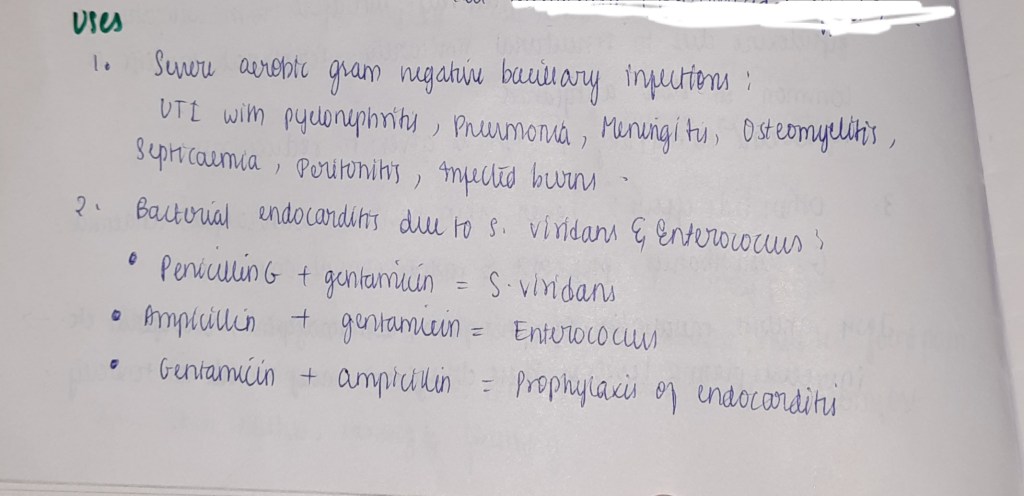 Uses
1. Severe aerobic gram negative bacillary infections :
UTI with pyelonephritis , Pneumonia , Meningitis , Osteomyelitis ,
Septicaemia , Peritonitis , Infected burns .
2. Bacterial endocarditis due to S. viridans & Enterococcus :
• Penicillin G + gentamicin = S. viridans
• Ampicillin + gentamicin = Enterococcus
• Gentamicin + ampicillin = Prophylaxis of endocarditis